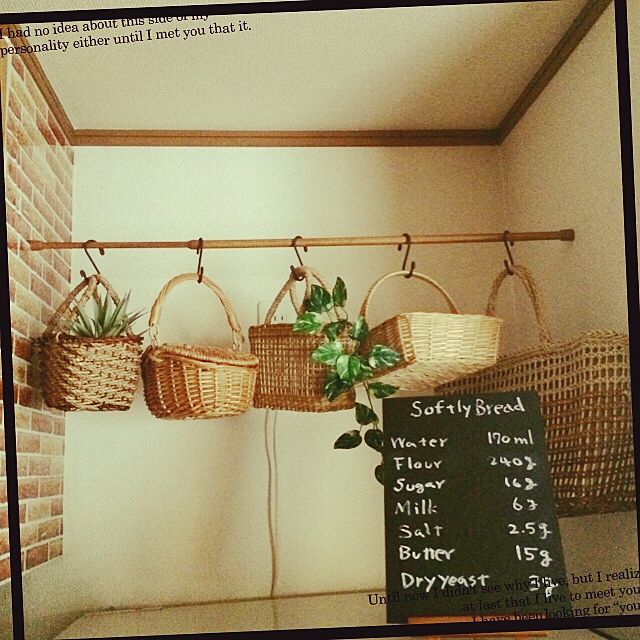 I had no idea about this side of my
personality either until I met you that it.
Softly Bread
Water 170ml
Flour 240g
Sugar 16g
Milk 6g
Salt 2.5g
Butter 15g
Dry Yeast
Until now I didn't see why I live, but I realiz
at last that I live to meet you
I have been looking for "you